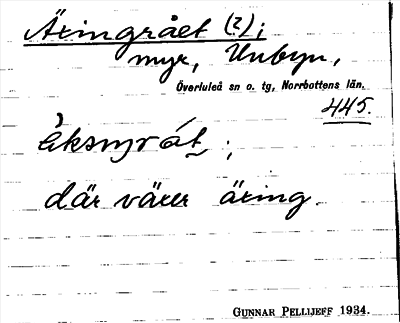 Äringrået (?);
myr, Unbyn,
Överluleå sn o. tg, Norrbottens län.
445.
där växer äring.
GUNNAR PELLIJEFF 1934.